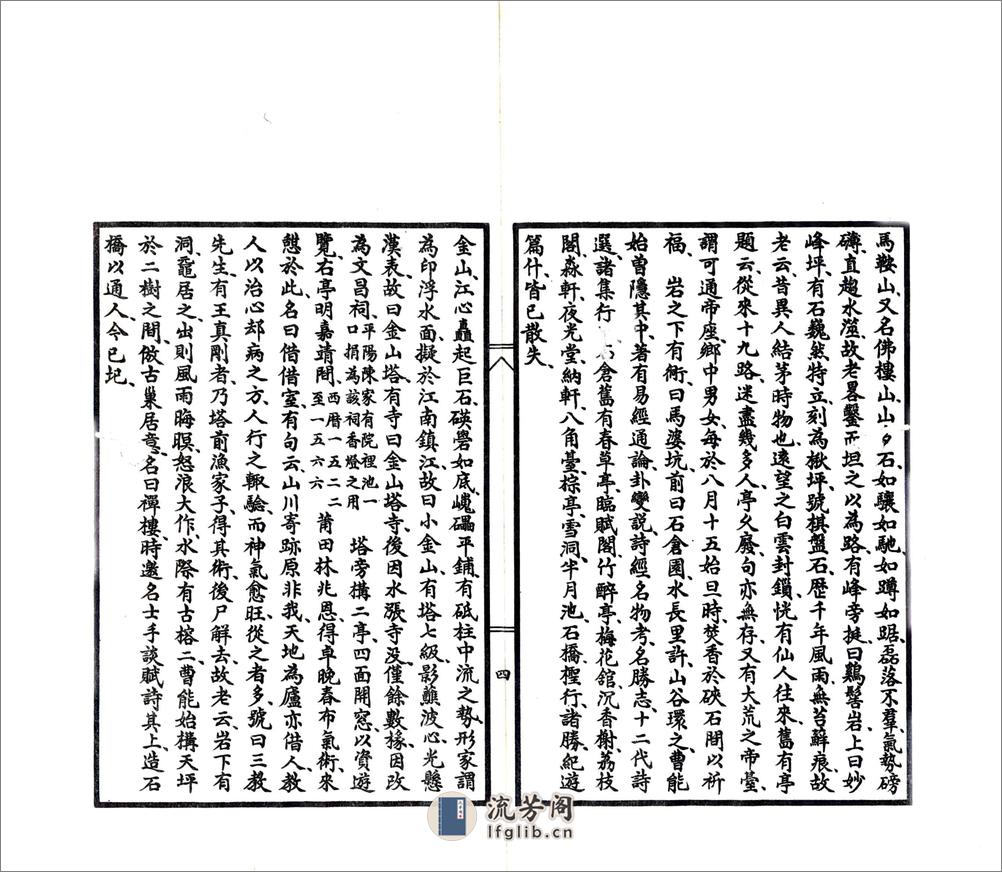 馬鞍山又名佛樓山山夕石如驤如馳如蹲如踞磊落不羣氣勢磅
礴直趨水濱故老畧鑿而坦之以為路有峰旁挺曰鷄髻岩上曰妙
峰坪有石巍然特立刻為楸坪號棋盤石歷千年風雨無苔蘚痕故
老云昔異人結茅時物也遠望之白雲封鎖恍有仙人往來舊有亭
題云從來十九路迷盡幾多人亭久廢句亦無存又有大荒之帝臺
謂可通帝座鄉中男女每於八月十五始旦時焚香於硤石間以祈
福 岩之下有衕曰馬婆坑前曰石倉園水長里許山谷環之曹能
始曾隱其中著有易經通論卦變說詩經名物考名勝志十二代詩
選諸集行 倉舊有春草亭臨賦閣竹醉亭梅花舘沉香榭荔枝
閣淼軒夜光堂納軒八角臺棕亭雪洞半月池石橋檉行諸勝紀遊
篇什皆已散失
四
金山江心矗起巨石磈礐如底巉礧平鋪有砥柱中流之勢形家謂
為印浮水面擬於江南鎮江故曰小金山有塔七級影蘸波心光懸
漢表故曰金山塔有寺曰金山塔寺後因水漲寺没僅餘數椽因改
為文昌祠平陽陳家有院裡池一口捐為該祠香燈之用 塔旁構二亭四面開窓以資遊
覽右亭明嘉靖間西曆一五二二至一五六六 莆田林兆恩得卓晚春布氣術來
憇於此名曰借借室有句云山川寄跡原非我天地為廬亦借人教
人以治心却病之方人行之輒驗而神氣愈旺從之者多號曰三教
先生有王真剛者乃塔前漁家子得其術後尸解去故老云岩下有
洞黿居之出則風雨晦暝怒浪大作水際有古榕二曹能始構天坪
於二樹之間倣古巢居意名曰禪樓時邀名士手談賦詩其上造石
橋以通人今已圮
流芳阁
lfglib.cn